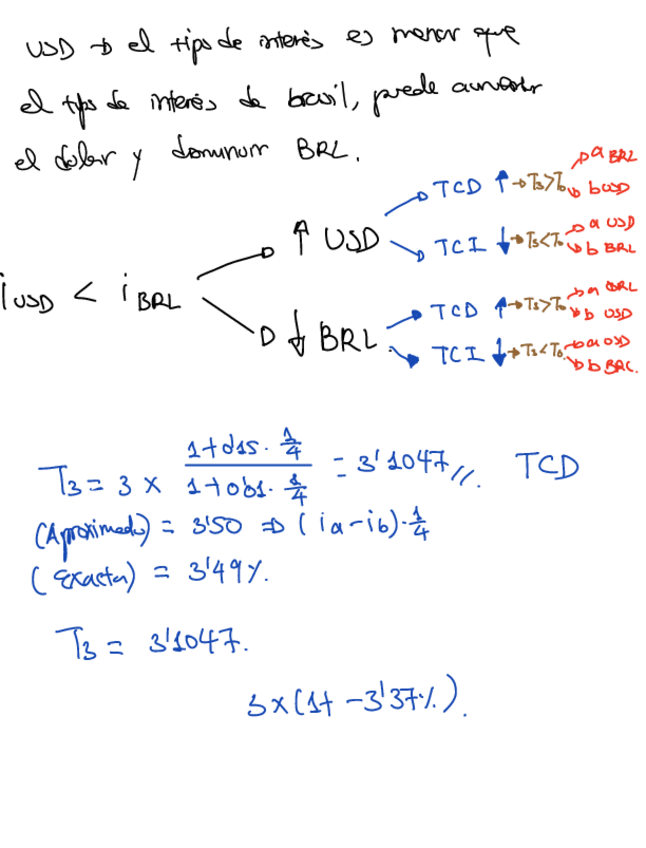 USD → el tipo de interés es menor que
el tipo de interés de brasil, puede aumentar
el dolar y disminuir BRL.
i USD < i BRL
↑ USD
TCD ↑ → T3 > T0
a BRL
b USD
TCI ↓ → T3 < T0
a USD
b BRL
↓ BRL
TCD ↑ → T3 > T0
a BRL
b USD
TCI ↓ → T3 < T0
a USD
b BRL.
T3 = 3 × (1+0'15 · 1/4) / (1+0'01 · 1/4) = 3'1047 //. TCD
(Aproximado) = 3'50 ⇒ (ia - ib) · 1/4
(Exacta) = 3'49 %.
T3 = 3'1047.
3 × (1+ -3'37%).